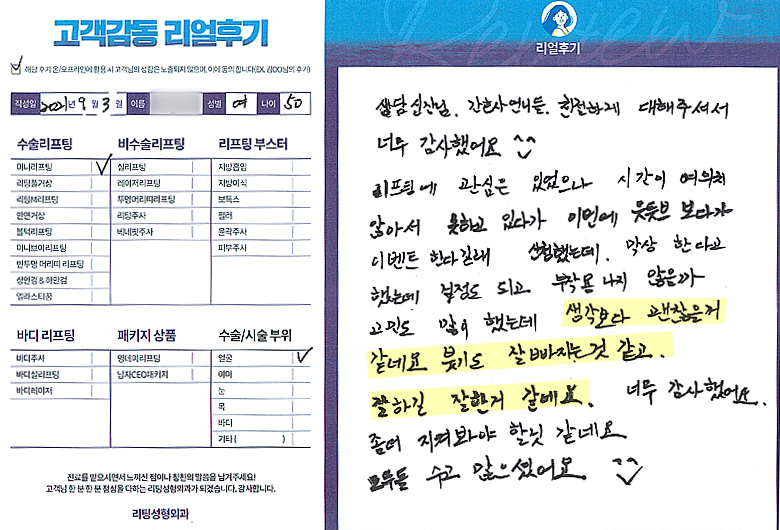 고객감동 리얼후기
해당 후기 온/오프라인에 활용 시 고객님의 성함은 노출되지 않으며, 이에 동의 합니다(EX. 김OO님의 후기)
작성일 2021년 9월 3일 이름 성별 여 나이 50
수술리프팅
미니리프팅 ✓
리팅풀거상
리팅M리프팅
안면거상
볼턱리프팅
미니브이리프팅
반투명 머리띠 리프팅
상안검 & 하안검
엘라스티꿈
비수술리프팅
실리프팅
레이저리프팅
투명머리띠리프팅
리팅주사
베네핏주사
리프팅 부스터
지방흡입
지방이식
보톡스
필러
윤곽주사
피부주사
바디 리프팅
바디주사
바디실리프팅
바디레이저
패키지 상품
원데이리프팅
남자CEO패키지
수술/시술 부위
얼굴 ✓
이마
눈
목
바디
기타 ( )
진료를 받으시면서 느끼신 점이나 칭찬의 말씀을 남겨주세요!
고객님 한 분 한 분 정성을 다하는 리팅성형외과가 되겠습니다. 감사합니다.
리팅성형외과
Review
리얼후기
상담실장님, 간호사언니들, 친절하게 대해주셔서
너무 감사했어요 ^^
리프팅에 관심은 있었으나 시간이 여의치
않아서 못하고 있다가 이번에 유튜브 보다가
이벤트 한다길래 신청했는데. 막상 한다고
했는데 걱정도 되고 부작용 나지 않을까
고민도 많이 했는데 생각보다 괜찮은거
같네요 붓기도 잘빠지는것 같고.
잘하길 잘한거 같네요. 너무 감사했어요.
좀더 지켜봐야 할닛 같네요
모두들 수고 많으셨어요. ^^